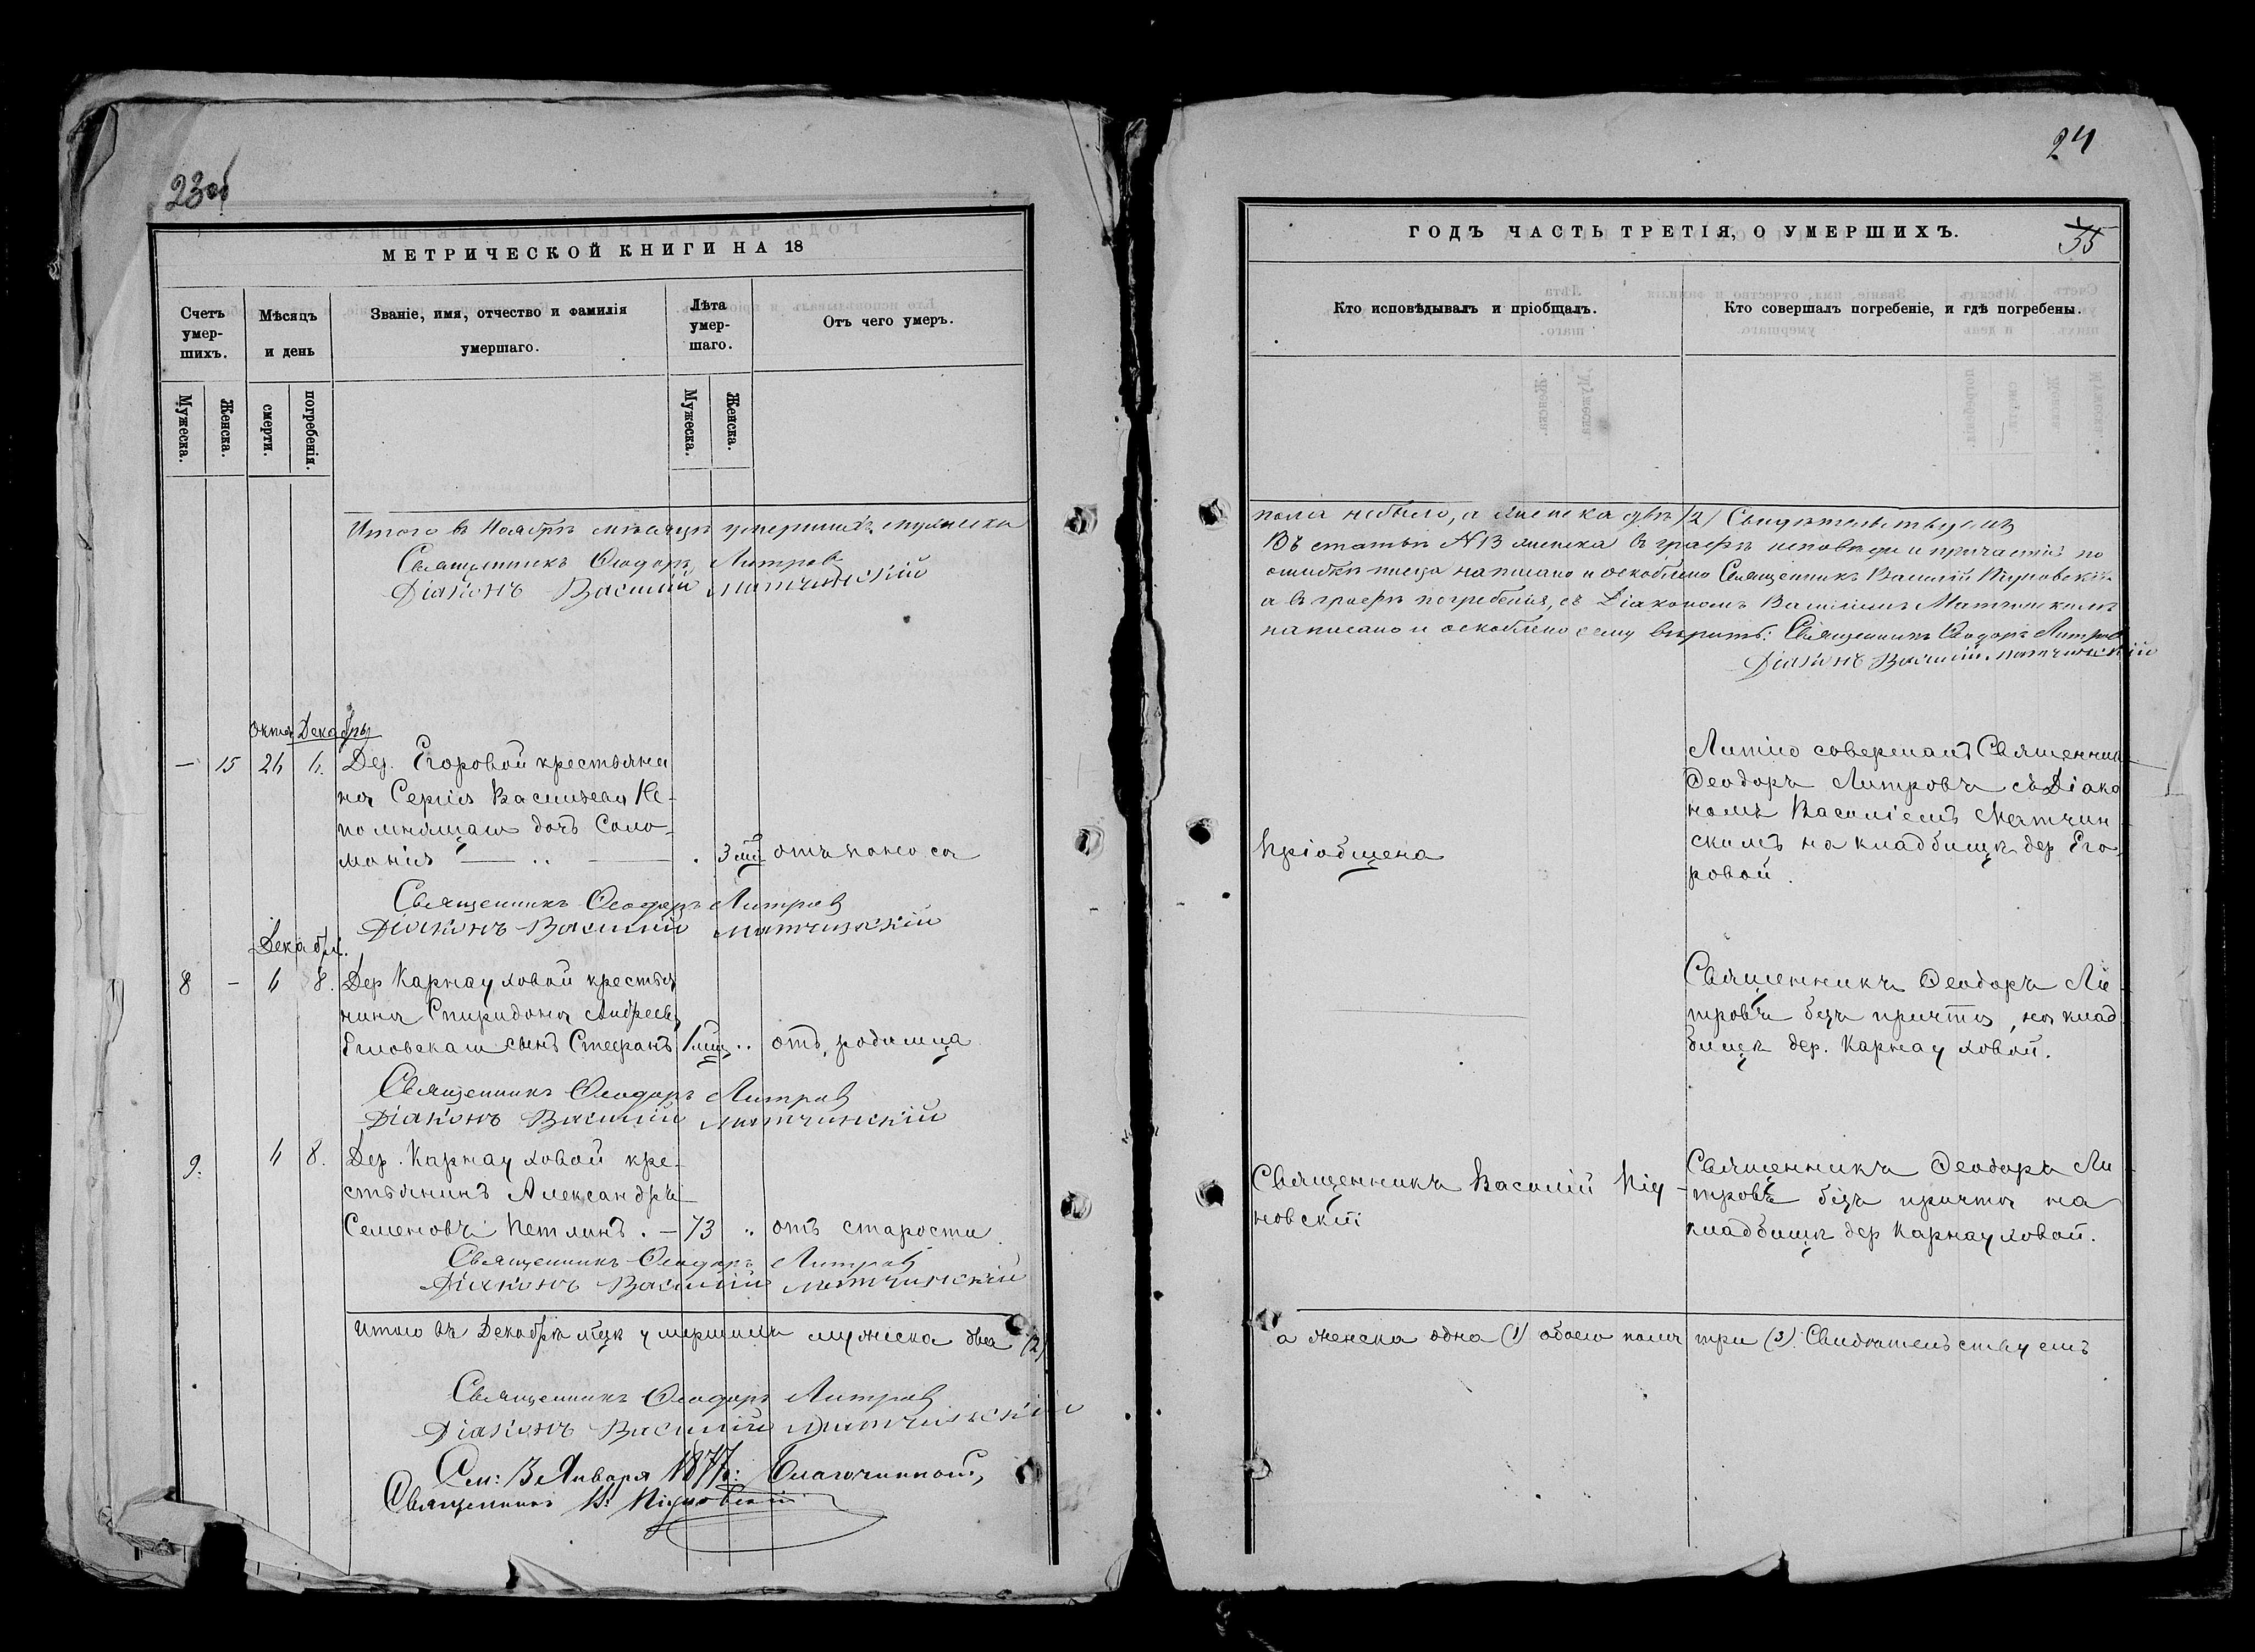 23об
МЕТРИЧЕСКОЙ КНИГИ НА 18
Счетъ умер- шихъ.
Мѣсяцъ и день
Званіе, имя, отчество и фамилія умершаго.
Лѣта умер- шаго.
Отъ чего умеръ.
Мужеска.
Женска.
смерти.
погребенія.
Мужеска.
Женска.
Итого въ Ноябрѣ мѣсяцѣ умершихъ мужеска
Священникъ Ѳеодоръ Литровъ
Діаконъ Василій Матчинскій
Октя Декабрь
— 15 26 6. Дер. Егоровой крестьяни
на Сергія Васильева Не-
помнящаго дочь Соло-
монія 3 мц отъ поноса
Священникъ Ѳеодоръ Литровъ
Діаконъ Василій Матчинскій
Декабрь.
8 — 6 8. Дер Карнауховой крестья
нина Спиридона Андреева
сынъ Стефанъ 1 мц. .. отъ родимца
Священникъ Ѳеодоръ Литровъ
Діаконъ Василій Матчинскій
9. 6 8. Дер. Карнауховой кре-
стьянинъ Александръ
Семеновъ Петлинъ. — 73 .. отъ старости
Священникъ Ѳеодоръ Литровъ
Діаконъ Василій Матчинскій
Итого въ Декабрѣ мцѣ умершихъ мужеска два (2)
Священникъ Ѳеодоръ Литровъ
Діаконъ Василій Матчинскій
См: 3 Января 1877 г: Благочинный,
Священникъ В: Піуновскій
24
ГОДЪ ЧАСТЬ ТРЕТІЯ, О УМЕРШИХЪ.
55
Кто исповѣдывалъ и пріобщалъ.
Кто совершалъ погребеніе, и гдѣ погребены.
пола небыло, а женска двѣ (2) Свидѣтельствуемъ
Въ статьѣ №13 женска въ графѣ исповѣди и причастія по
ошибкѣ писца написано и оскоблено Священникъ Василій Піуновскій
а въ графѣ погребенія, съ Діакономъ Василіемъ Матчинскимъ
написано и оскоблено сему вѣрить: Священникъ Ѳеодоръ Литровъ
Діаконъ Василій Матчинскій
Пріобщена
Литію совершалъ Священникъ
Ѳеодоръ Литровъ съ Діако
номъ Василіемъ Матчин
скимъ на кладбищѣ дер Его-
ровой.
Священникъ Ѳеодоръ Ли
тровъ безъ причта, на клад
бищѣ дер. Карнауховой.
Священникъ Василій Піу-
новскій
Священникъ Ѳеодоръ Ли
тровъ безъ причта на
кладбищѣ дер Карнауховой.
а женска одна (1) обоего пола три (3). Свидѣтельствуемъ